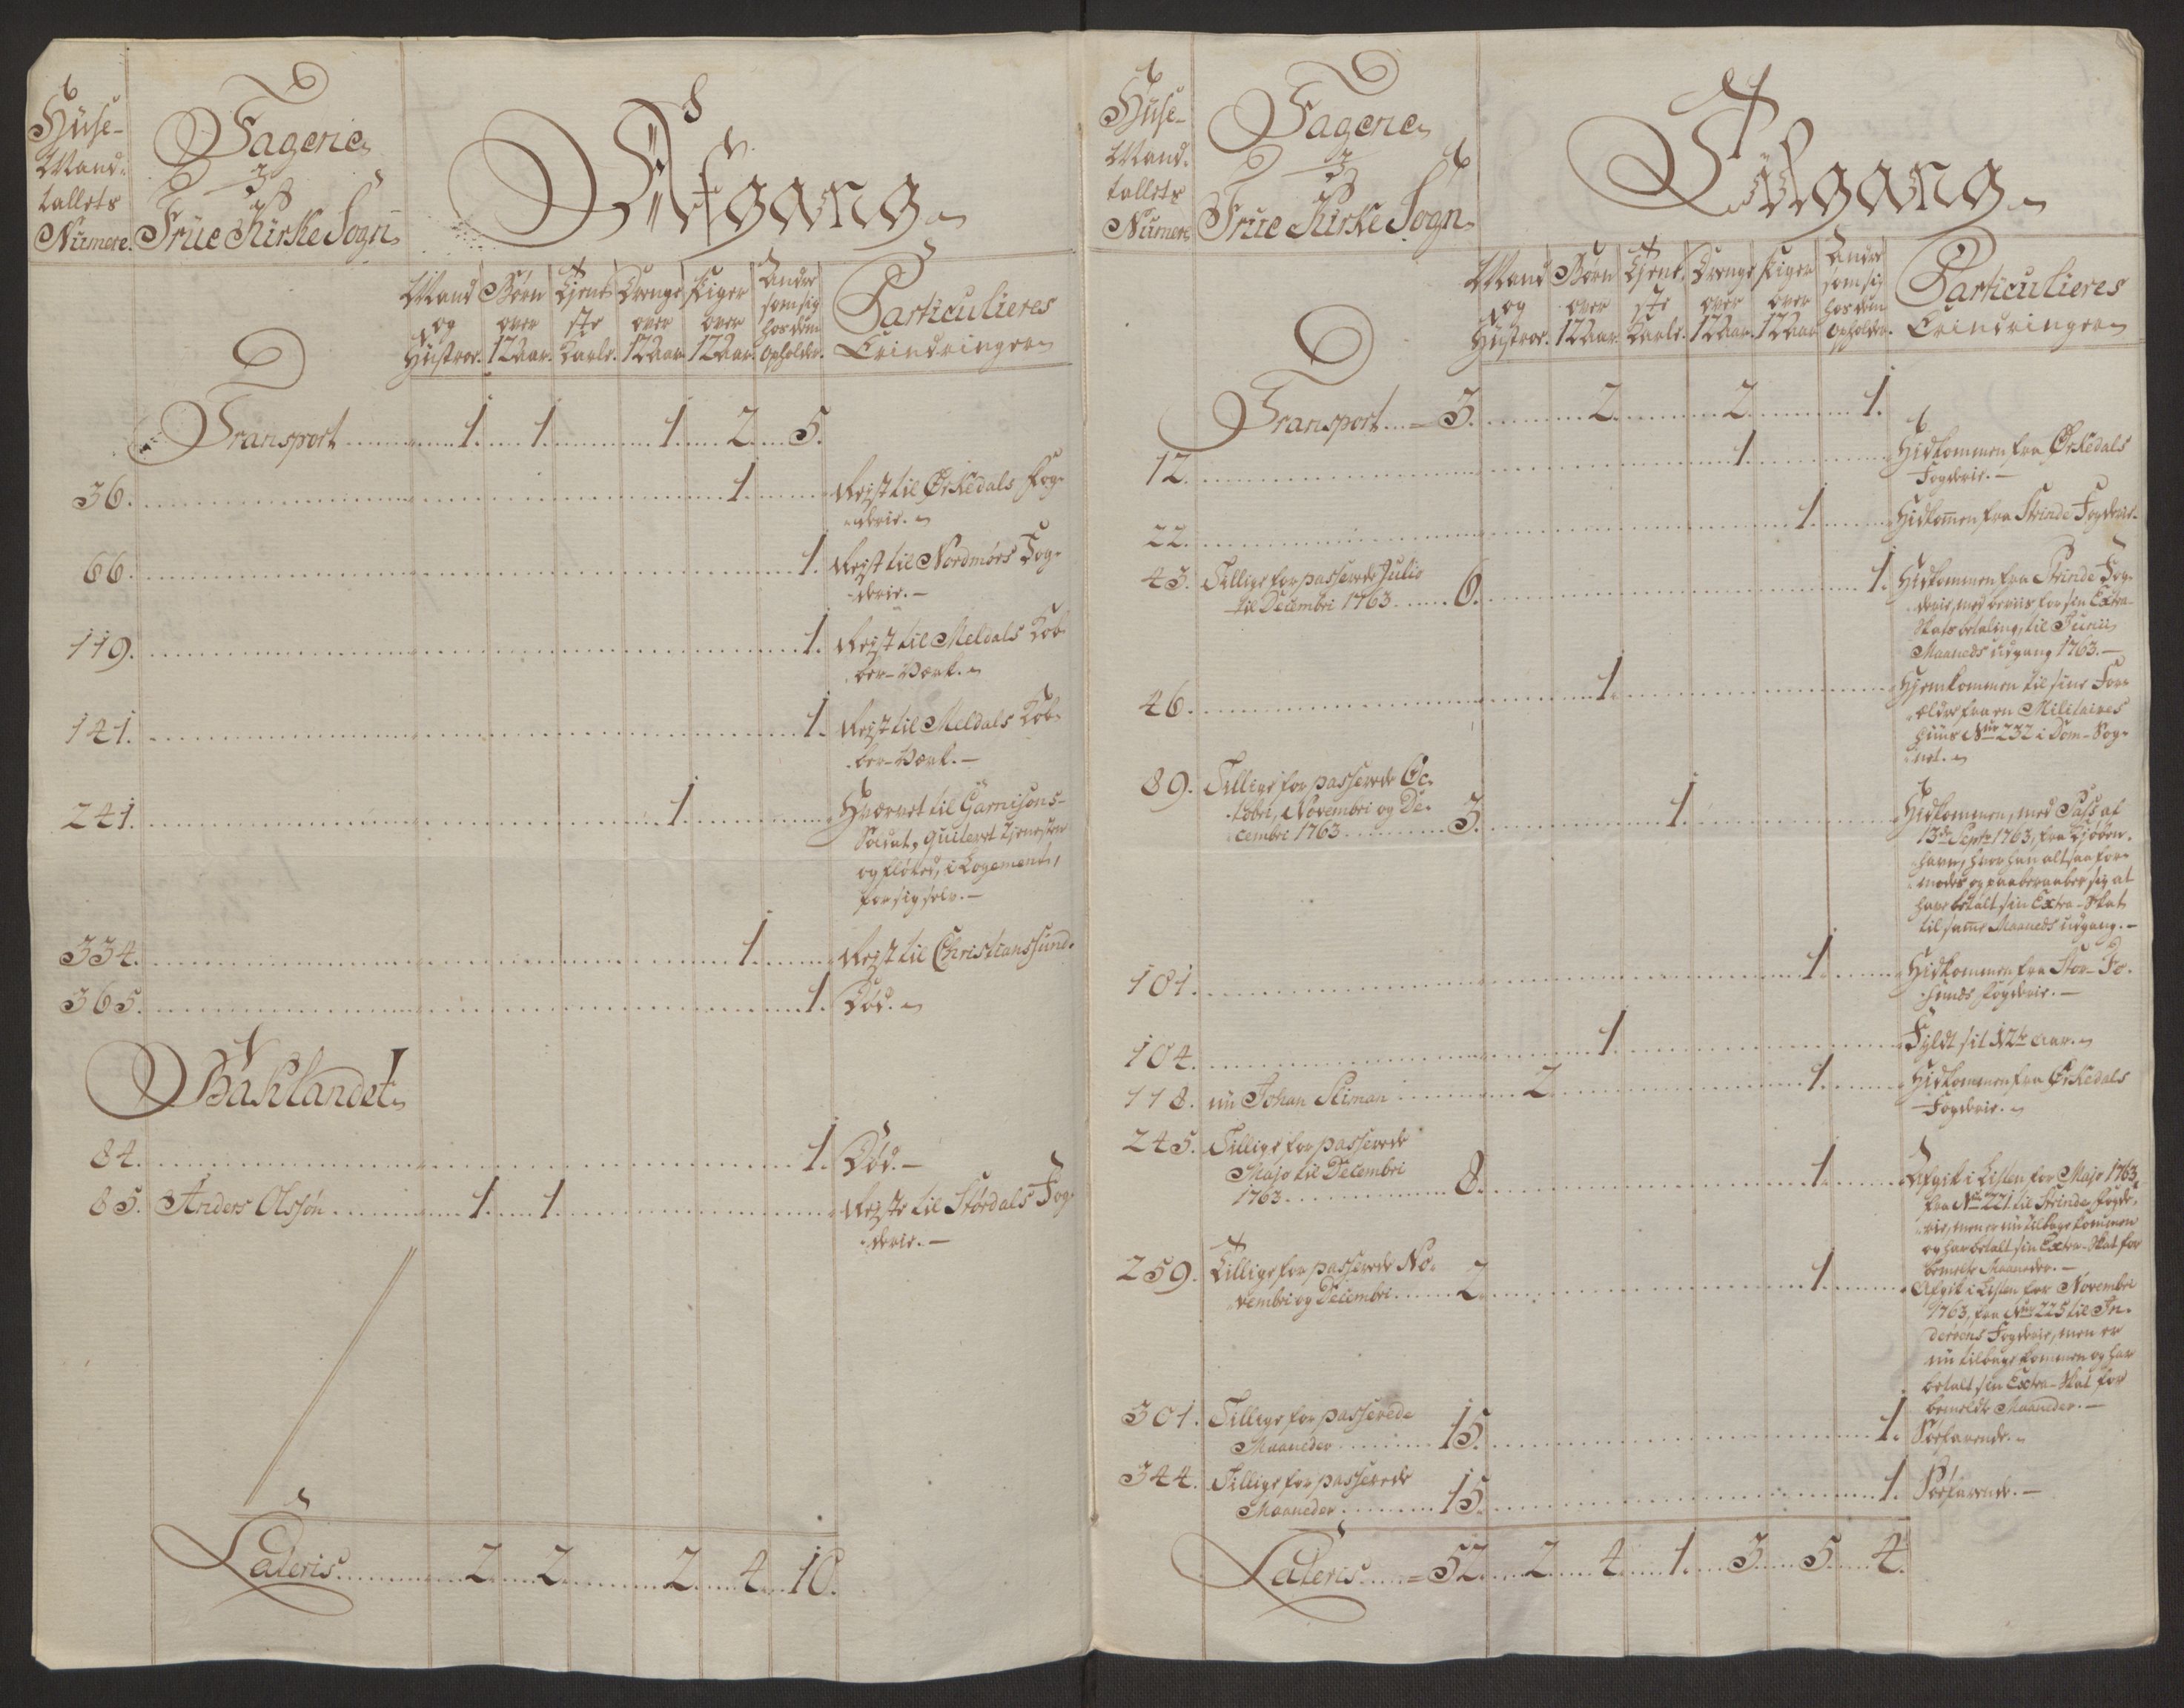 Huse-
Mand-
tallets
Numere.
Tagerie
3
Frue Kirke Sogn
Afgang
Mand
og
Hustroe.
Børn
over
12 Aar.
Tiene
ste
Karle.
Drenge
over
12 Aar.
Piger
over
12 Aar.
Andre
som sig
hos dem
opholder.
Particulieres
Erindringer
Transport 1. 1. 1. 2. 5.
36. 1. Rejst til Ørkedals Fog-
derie.
66. 1. Rejst til Nordmørs Fog-
derie.
119. 1. Rejst til Meldals Kob-
ber-Værk.
141. 1. Rejst til Meldals Kob-
ber-Værk.
241. 1. Hværvet til Garnisons-
Soldat, quiteret Tienesten
og fløtted, i Logement,
for sig selv.
334. 1. Rejst til Christianssund.
365. 1. Død.
Baklandet
84. 1. Død.
85. Anders Olssøn 1. 1. Rejste til Størdals Fog-
derie.
Lateris 2. 2. 2. 4. 10.
Huse-
Mand-
tallets
Numere
Tagerie
3
Frue Kirke Sogn
Tilgang
Mand
og
Hustroe.
Børn
over
12 Aar.
Tiene
ste
Karle.
Drenge
over
12 Aar.
Piger
over
12 Aar
Andre
som sig
hos dem
opholder.
Particulieres
Erindringer
Transport 3. 2. 2. 1.
12. 1. Hidkommen fra Ørkedals
Fogderie.
22. 1. Hidkommen fra Strinde Fogderie.
43. Tillige for passerede Julio
til Decembri 1763 6. 1. Hidkommen fra Strinde Fog-
derie, med beviis for sin Extra-
Skats betaling, til Junii
Maaneds udgang 1763.
46. 1. Hjemkommen til sine For-
ældre fra en Militaires
Huus No 232 i Dom-Sog-
net.
89. Tillige for passerede Oc-
tobri, Novembri og De-
cembri 1763 3. 1. Hidkommen, med Pass af
13de Septr 1763, fra Kjøben-
havn, hvor han altsaa for-
modes og paaberaaber sig at
have betalt sin Extra-Skat
til samme Maaneds udgang.
101. 1. Hidkommen fra Stor-Fo-
sens Fogderie.
104. 1. Fyldt sit 12te Aar.
118. nu Johan Sliman 2. 1. Hidkommen fra Ørkedals
Fogderie.
245. Tillige for passerede
Majo til Decembri
1763 8. 1. Afgik i Listen for Majo 1763,
fra No 221 til Strinde Fogde-
rie, men er nu tilbage kommen
og har betalt sin Extra-Skat for
bemelte Maaneder.
259. Tillige for passerede No-
vembri og Decembri 2. 1. Afgik i Listen for Novembri
1763, fra No 225 til In-
derøens Fogderie, men er
nu tilbage kommen og har
betalt sin Extra-Skat for
bemeldte Maaneder.
301. Tillige for passerede
Maaneder 15. 1. Søefarende.
344. Tillige for passerede
Maaneder 15. 1. Søefarende.
Lateris 52. 2. 4. 1. 3. 5. 4.